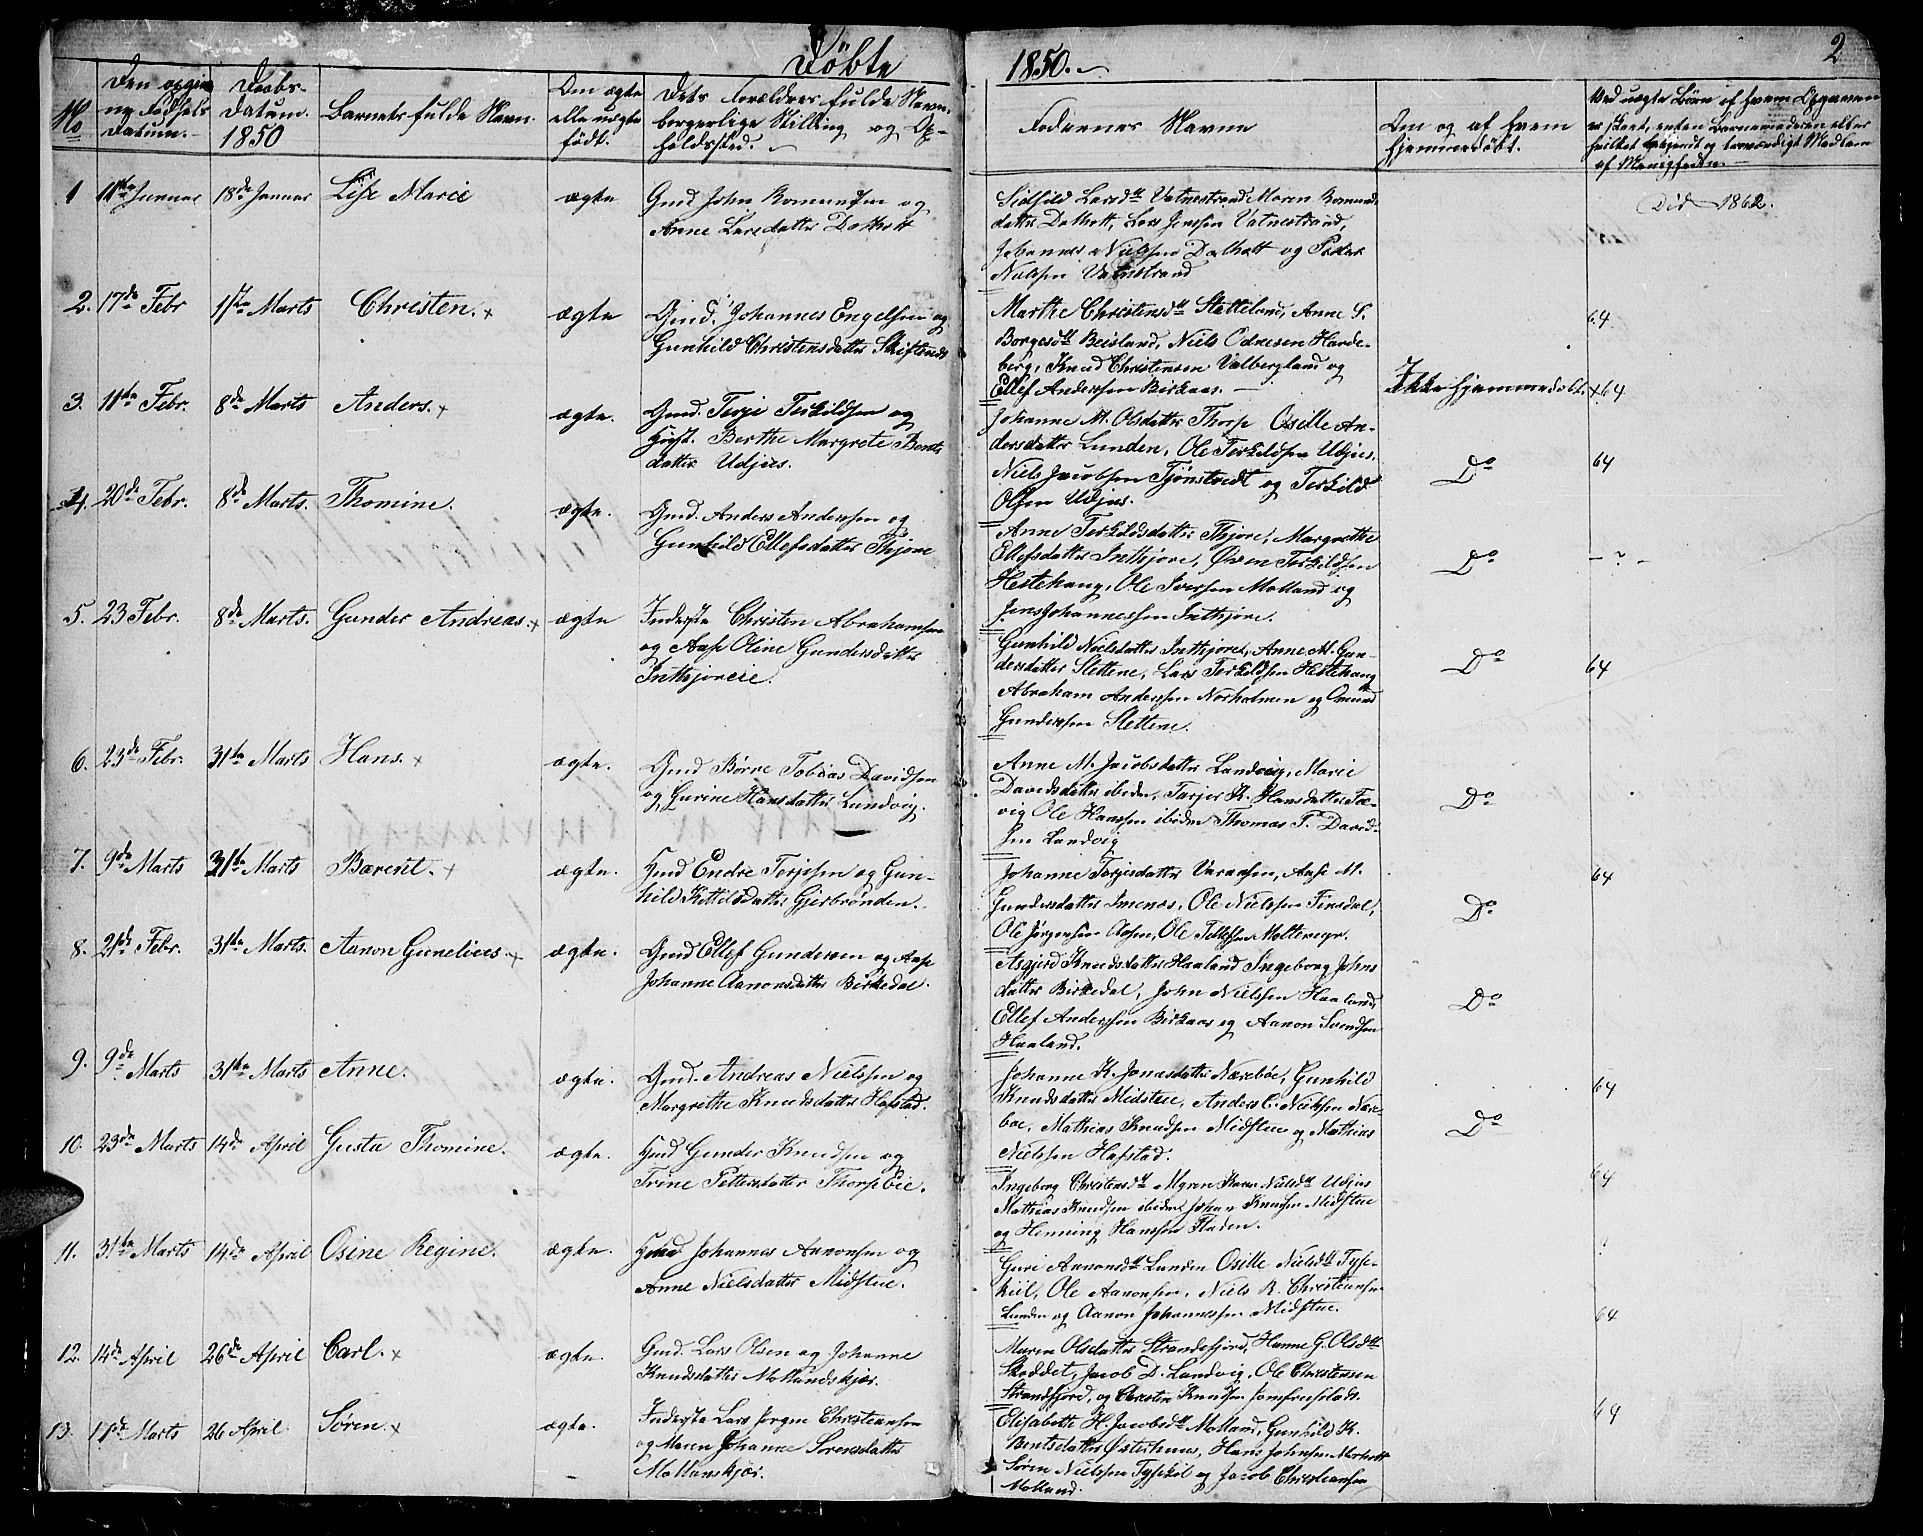 Døbte
1850.
2
No
Den opgivne Fødsels Datum.
Daabs-Datum. 1850
Barnets fulde Navn.
Om ægte elle uægte født.
Dets Forældres fulde Navn, borgerlige Stilling og Opholdssted.
Faddernes Navne
Om og af hvem hjemmedøbt.
Ved uægte Børn af hvem Opgaven er skeet, enten Barnemoderen eller hvilket bekjendt og troværdigt Medlem af Menigheden.
1 11te Januar 18de Januar Lise Marie ægte Gmd John Romundsen og
Anne Larsdatter Dalholt
Sidsild Larsdtt Vatnestrand Maren Romunds
datter Dalholt, Lars Jensen Vatnestrand,
Johannes Nielsen Dalholt og Peder
Nielsen Vatnestrand
Død 1862.
2. 17de Febr 1ste Marts Christen. + ægte Gmd. Johannes Engelsen og
Gunhild Christensdatter Skiftenes
Marthe Christensdtt Statteland, Anne S.
Borgesdtt Beisland, Niels Odnesen Harde-
berg, Knud Christensen Valbergland og
Ellef Anderssen Birkaas.
Ikke hjemmedøbt. +
64
3. 11te Febr. 8de Marts Anders. + ægte. Gmd. Terje Terkildsen og
Hust. Berthe Margrete Bents
datter Udjus.
Johanne M. Olsdatter Thorp Osille An-
dersdatter Lunden, Ole Terkildsen Udjus,
Niels Jacobsen Tjønstvedt og Terkild
Olsen Udjus.
Do
64
64
4. 20de Febr. 8de Marts. Thomine. ægte. Gmd. Anders Anderssen og
Gunhild Ellefsdatter Thjøre
Anne Terkildsdatter Thjøre, Margrethe
Ellefsdatter Inthjøre, Øven Terkildsen
Hestehaug, Ole Iversen Molland og
Jens Johannessen Inthjøre.
Do
- ? -
5. 23 Febr. 8de Marts. Gunder Andreas. + ægte Inderste Christen Abrahamsen
og Aase Oline Gundersdatter
Inthjøreie.
Gunhild Nielsdatter Inthjøre, Anne M. Gun-
dersdatter Slettene, Lars Terkildsen Hestehaug
Abraham Anderssen Norholmen og Omund
Gunderssen Slettene.
Do
64
6. 23de Febr. 31te Marts Hans. + ægte. Gmd Børre Tobias Davidsen
og Gurine Hansdatter Landvig.
Anne M. Jacobsdatter Landvig, Marie
Davidsdatter ibidm, Terjer K. Hansdatter Fæ-
vig Ole Hanssen ibidem Thomas T. David-
sen Landvig
Do
7. 9de Marts 31te Marts Bærent. + ægte. Hmd Endre Terjesen og Gun-
hild Kittilsdatter Gjerbrønden.
Johanne Terjesdatter Varaasen, Aase M.
Gundersdatter Imenæs, Ole Nielsen Finsdal,
Ole Jørgensen Aasen, Ole Tellefsen Moltemyr.
Do
64
8. 21de Febr. 31te Marts. Aanon Gunelius. + ægte. Gmd Ellef Gundersen og Aase
Johanne Aanonsdatter Birkedal.
Asgjerd Knudsdatter Haaland Ingeborg Johns
datter Birkedal, John Nielssen Haaland
Ellef Anderssen Birkaas og Aanon Svendsen
Haaland.
Do
9. 9de Marts 31te Marts Anne. ægte. Gmd. Andreas Nielssen og
Margrethe Knudsdatter Hafstad.
Johanne K. Jonasdatter Nærebøe, Gunhild
Knudsdatter Midstue, Anders C. Nielssen Nære-
boe, Mathias Knudsen Midstue og Mathias
Nielssen Hafstad.
Do
64
10. 23de Marts 14de April Gusta Thomine. ægte. Hmd Gunder Knudsen og
Trine Pettersdatter Thorp Eie.
Ingeborg Christensdtt Myren Karen Nielsdtt Udjus
Mathias Knudsen ibidm Johan Knudsen Midstue
og Henning Hanssen Fladen.
64
11. 31te Marts 14de April Osine Regine. ægte. Hmd Johannes Aanonsen og
Anne Nielsdatter Midstue.
Gure Aanonsdtt Lunden Osille Nielsdtt Tyse-
kiil, Ole Aanonsen, Niels R. Christiansen
Lunden og Aanon Johannessen Midstue.
64
12. 14de April 26de April Carl. + ægte. Gmd. Lars Olsen og Johanne
Knudsdatter Mollandskjær.
Maren Olsdatter Strandefjord, Hanne G. Olsdtt
Skoddet, Jacob D. Landvig, Ole Christensen
Strandfjord, og Christen Knudsen
13. 11te Marts 26 April. Søren. + ægte. Inderste Lars Jørgen Christiansen
og Maren Johanne Sørensdatter
Mollandskjær.
Elisabeth H. Jacobsdtt Molland, Gunhild K.
Bentsdatter Østerhus, Hans Johnsen
Søren Nielssen Tysekiil og Jacob Christiansen
Molland.
64